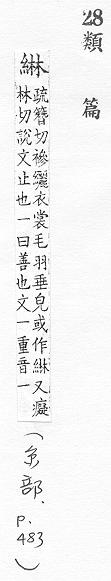 28類
篇
綝
疏簪切襂纚衣裳毛羽垂皃或作綝又癡
林切說文止也一曰善也文一重音一
(糸部.
p.
483
)